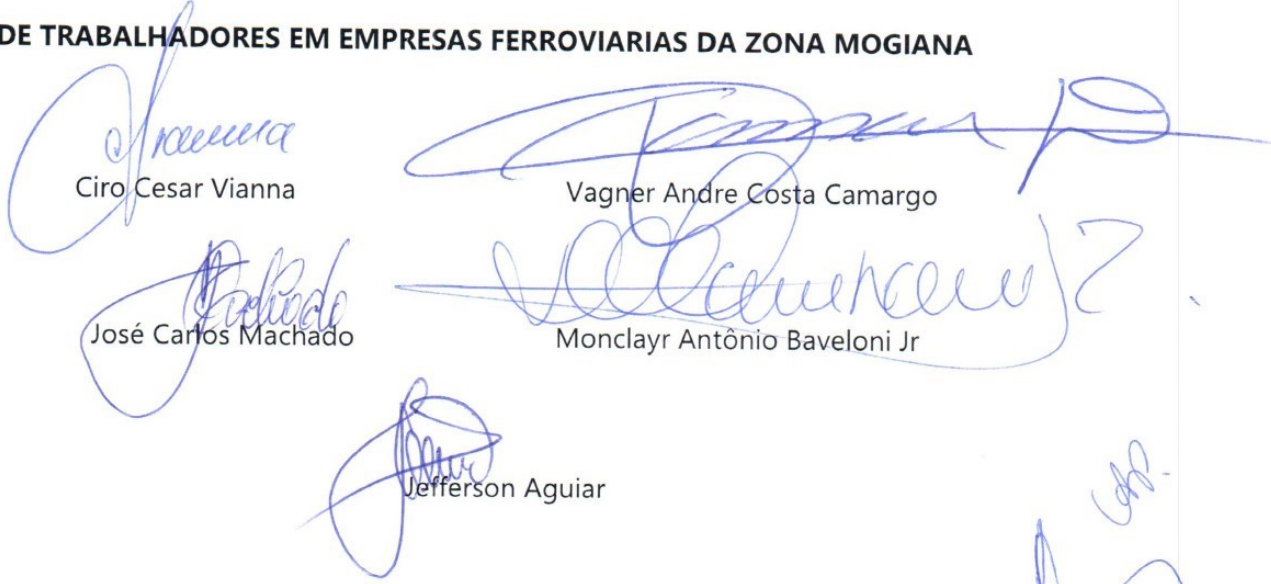 DE TRABALHADORES EM EMPRESAS FERROVIARIAS DA ZONA MOGIANA
Ciro Cesar Vianna
Vagner Andre Costa Camargo
José Carlos Machado
Monclayr Antônio Baveloni Jr
Jefferson Aguiar